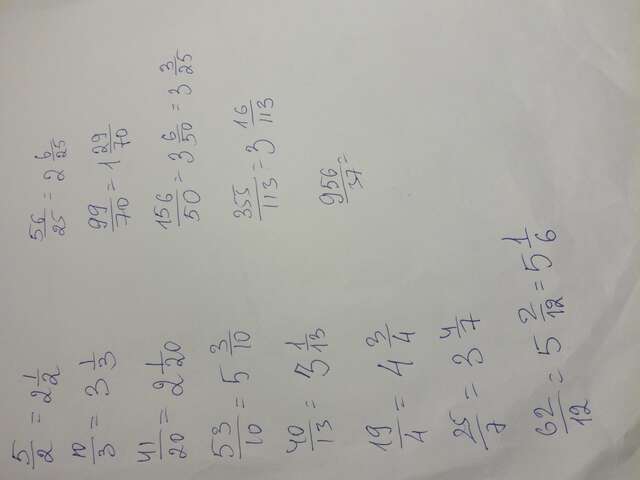 5/2 = 2 1/2
10/3 = 3 1/3
41/20 = 2 1/20
53/10 = 5 3/10
40/13 = 3 1/13
19/4 = 4 3/4
25/7 = 3 4/7
62/12 = 5 2/12 = 5 1/6
56/25 = 2 6/25
99/70 = 1 29/70
156/50 = 3 6/50 = 3 3/25
355/113 = 3 16/113
956/37 =